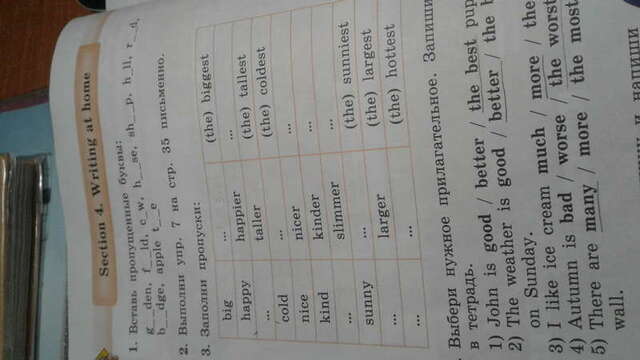 Section 4. Writing at home
1. Вставь пропущенные буквы:
g__den, f__ld, c_w, h__se, sh__p, h_ll, r__d,
b__dge, apple t__e
2. Выполни упр. 7 на стр. 35 письменно.
3. Заполни пропуски:
big ... (the) biggest
happy happier ...
... taller (the) tallest
cold ... (the) coldest
nice nicer ...
kind kinder ...
... slimmer ...
sunny ... (the) sunniest
... larger (the) largest
... ... (the) hottest
Выбери нужное прилагательное. Запиши
в тетрадь.
1) John is good / better / the best
2) The weather is good / better / the
on Sunday.
3) I like ice cream much / more / the
4) Autumn is bad / worse / the worst
5) There are many / more / the most
wall.